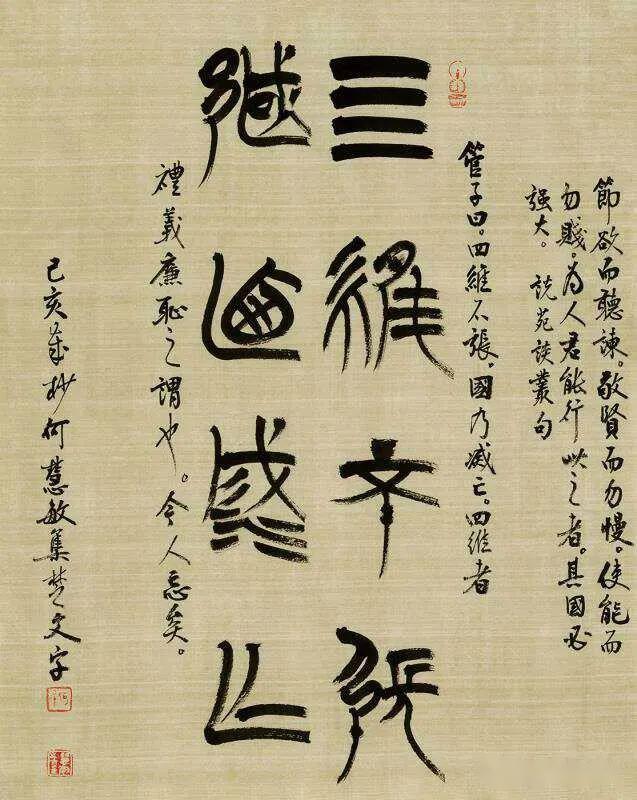 節欲而聽諫。敬賢而勿慢。使能而
勿賤。為人君能行此之者。其國必
强大。 説苑談叢句
管子曰。四維不張。國乃滅亡。四維者
亖維不張
國乃滅亡
禮義廉恥之謂也。今人忘矣。
己亥歲杪何慧敏集楚文字